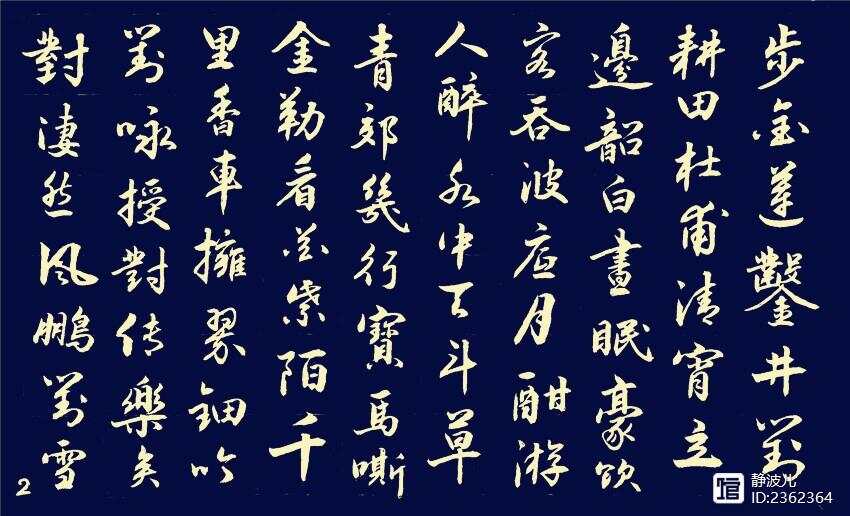 步金蓮鑿井對
耕田杜甫清宵立
邊韶白晝眠豪飲
客吞波底月酣游
人醉水中天斗草
青郊幾行寶馬嘶
金勒看花紫陌千
里香車擁翠鈿吟
對咏授對传樂矣
對凄然風鵬對雪
2
静波儿
ID:2362364